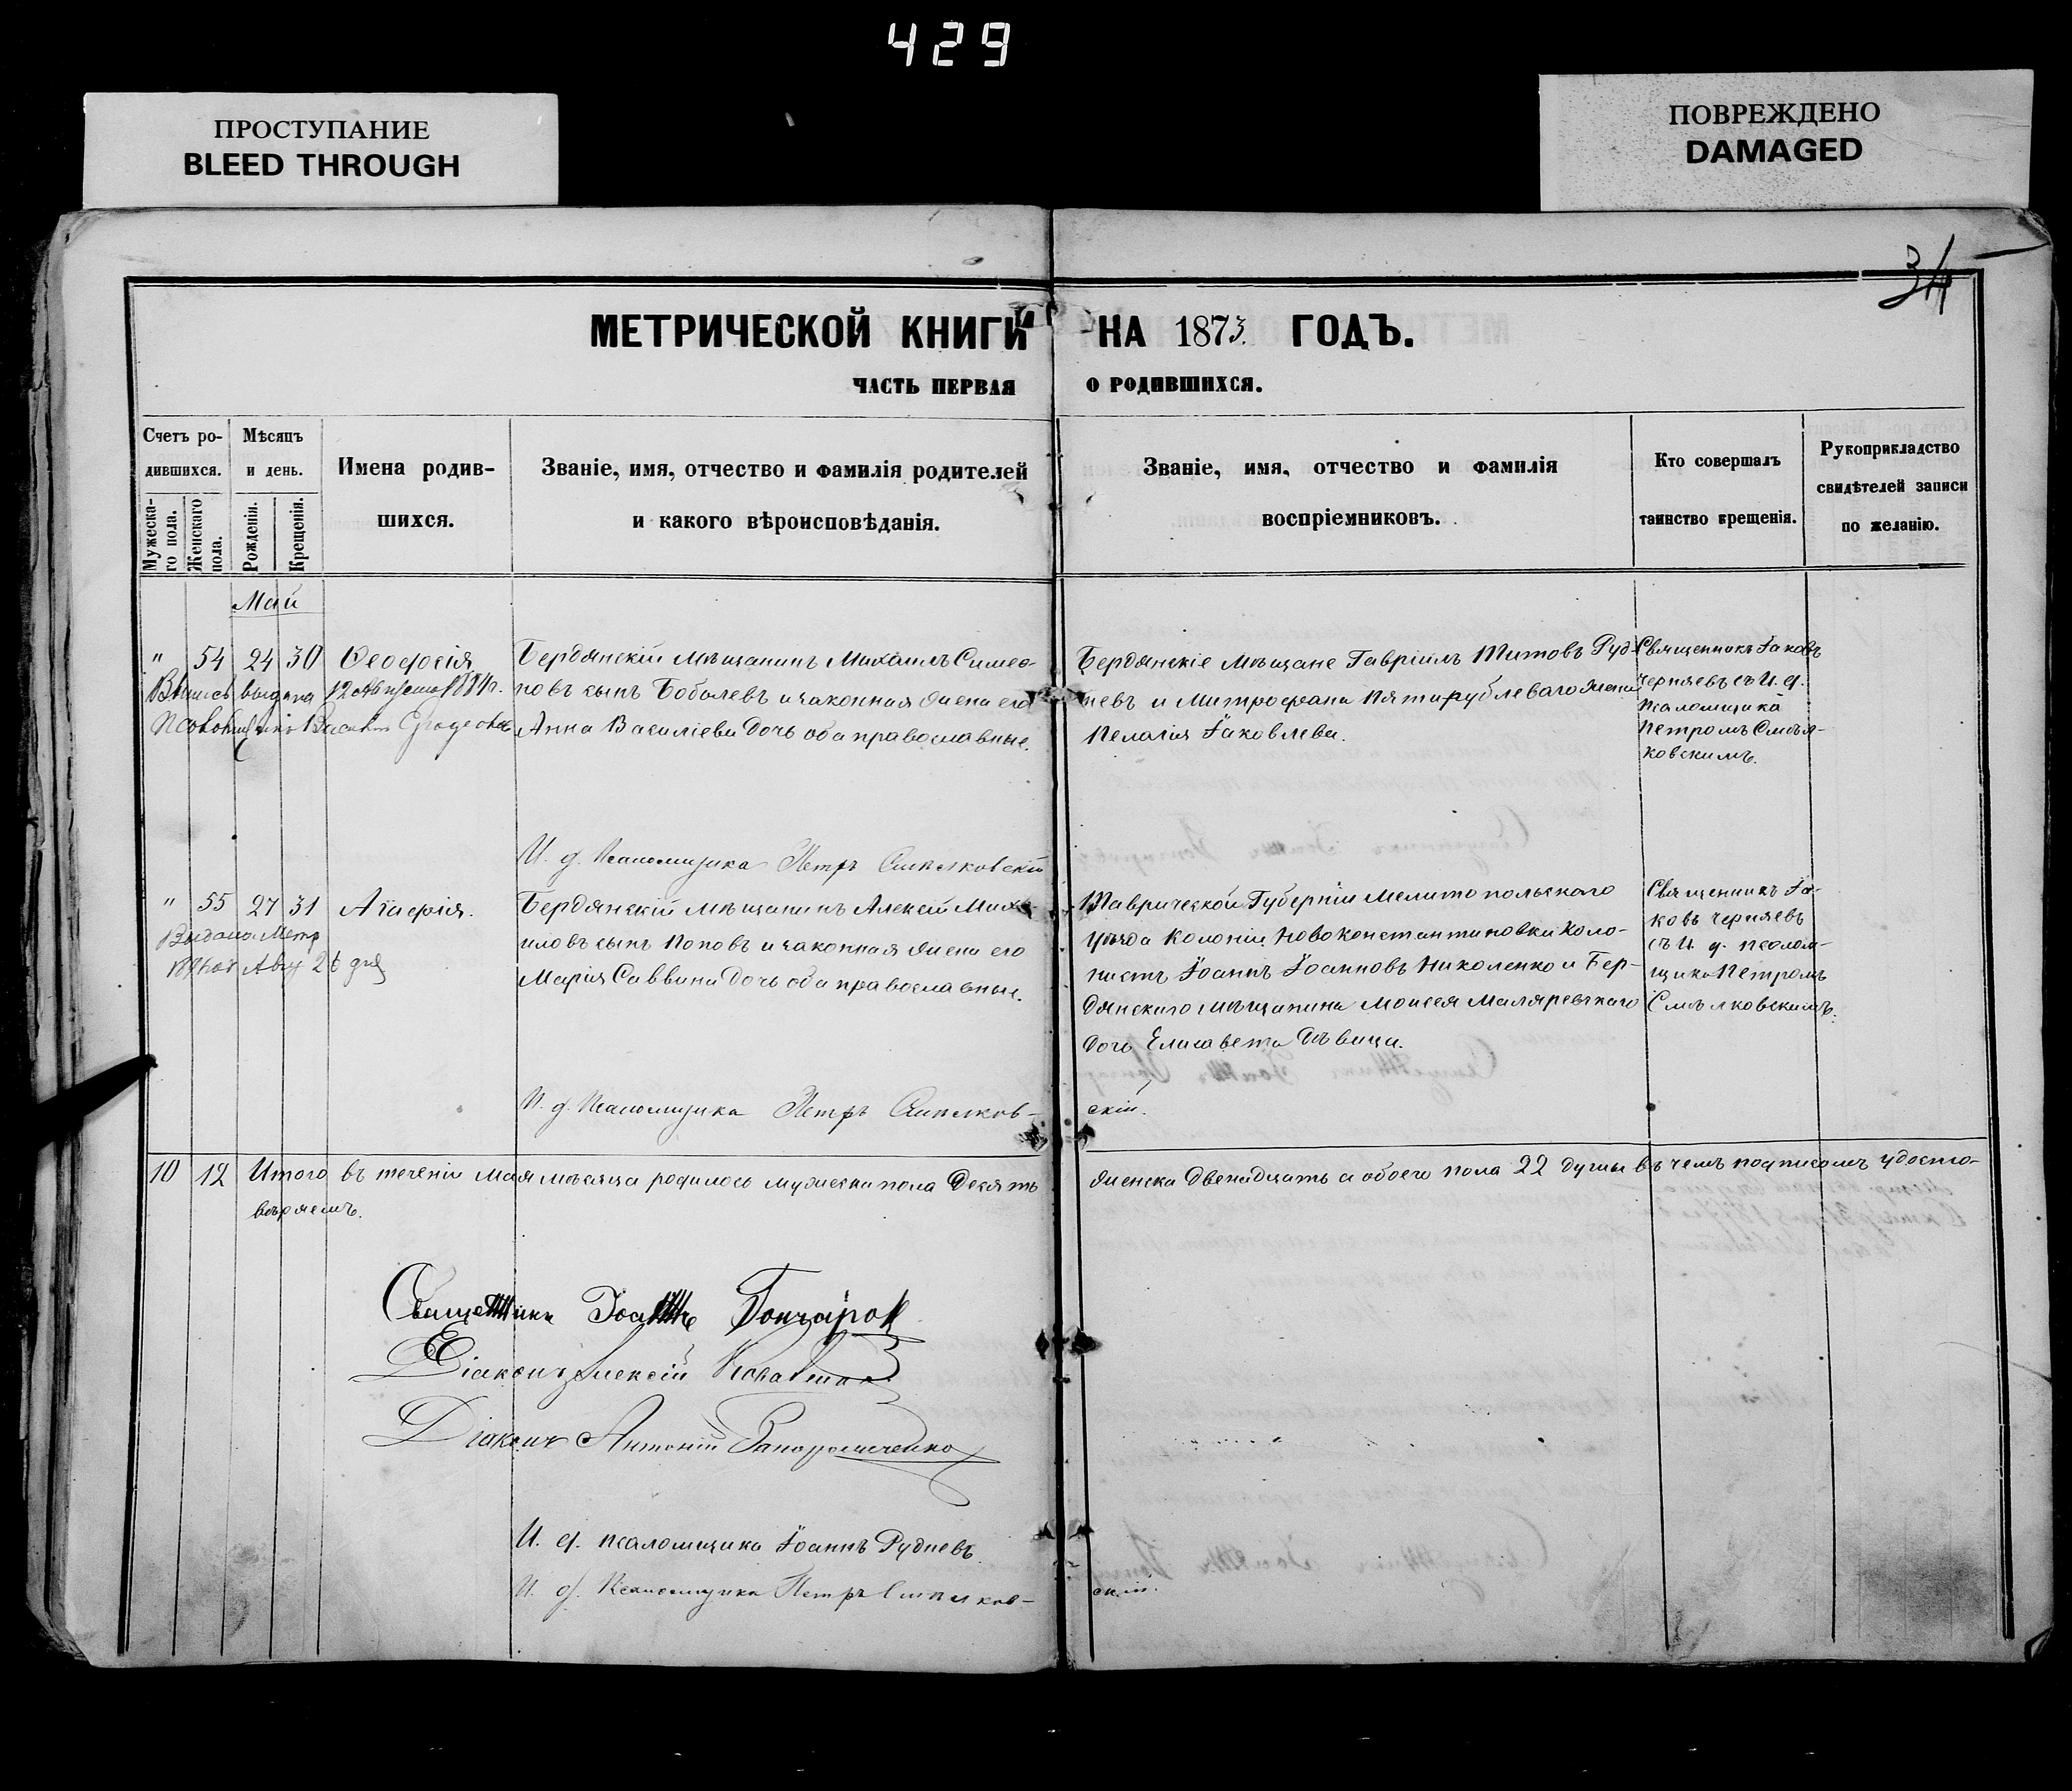 429
ПРОСТУПАНИЕ
BLEED THROUGH
ПОВРЕЖДЕНО
DAMAGED
34
МЕТРИЧЕСКОЙ КНИГИ НА 1873. ГОДЪ.
ЧАСТЬ ПЕРВАЯ О РОДИВШИХСЯ.
Счетъ ро-
дившихся.
Мужеска-
го пола.
Женскаго
пола.
Мѣсяцъ
и день.
Рожденія.
Крещенія.
Имена родив-
шихся.
Званіе, имя, отчество и фамилія родителей
и какого вѣроисповѣданія.
Званіе, имя, отчество и фамилія
воспріемниковъ.
Кто совершалъ
таинство крещенія.
Рукоприкладство
свидѣтелей записи
по желанію.
Май
" 54 24 30 Ѳеофосія
выдана 12 Августа
Бердянскій мѣщанинъ Михаилъ Симео-
новъ сынъ Боболевъ и законная жена его
Анна Василіева дочь оба православные.
Бердянскіе мѣщане Гавріилъ Титовъ Руд-
невъ и Митрофана Пятирублеваго жена
Пелагія Іаковлева.
Священникъ Іаковъ
Черняевъ съ И. д.
псаломщика
Петромъ Смѣл-
ковскимъ.
И. д. Псаломщика Петръ Смѣлковскій
" 55 27 31 Агафія.
Выдана Метр
Авг 26 дня
Бердянскій мѣщанинъ Алексій Миха-
иловъ сынъ Поповъ и законная жена его
Марія Саввина дочь оба православные.
Таврической Губерніи Мелитопольскаго
уѣзда Колоніи Новоконстантиновки Коло-
нистъ Іоаннъ Іоанновъ Николенко и Бер-
дянскаго мѣщанина Моисея Маляревскаго
дочь Елисавета дѣвица.
Священникъ Іа-
ковъ Черняевъ
съ И. д. псалом-
щика Петромъ
Смѣлковскимъ.
И. д. Псаломщика Петръ Смѣлков-
скій.
10 12 Итого въ теченіи Мая мѣсяца родилось мужеска пола десять женска двенадцать а обоего пола 22 души въ чемъ подписомъ удосто-
вѣряемъ.
Священникъ Іоаннъ Гончаров
Діаконъ Алексій
Діаконъ Антоній Запорожченко
И. д. псаломщика Іоаннъ Рудневъ.
И. д. Псаломщика Петръ Смѣлков-
скій.